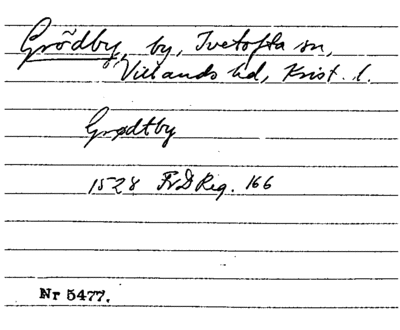 Grödby, by, Ivetofta sn,
Villands hd, Krist. l.
Grødtby
1528 FrDReg. 166
Nr 5477.